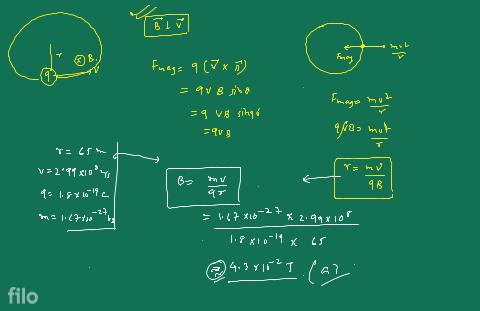 B ⊥ v
r
ⓧ B.
q
v
Fmag = q (v × B)
= qvB sinθ
= q vB sin90
= qvB
Fmag
mv²/r
Fmag = mv²/r
qvB = mv²/r
r = mv/qB
r = 65 m
v = 2.99×10⁸ m/s
q = 1.8×10⁻¹⁹ C
m = 1.67×10⁻²⁷ kg
B = mv/qr
= 1.67×10⁻²⁷ × 2.99×10⁸
1.8×10⁻¹⁹ × 65
≈ 4.3×10⁻² T. (a)
filo